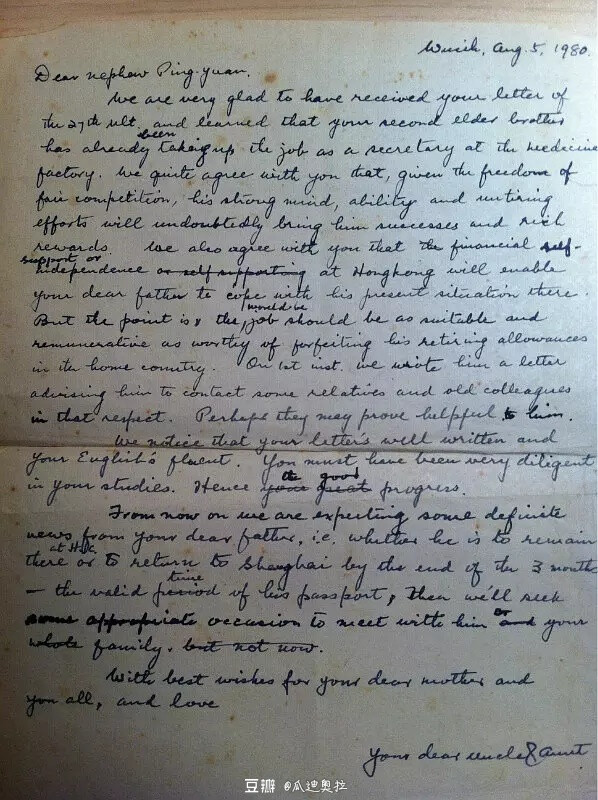 Wusih, Aug. 5, 1980.
Dear nephew Ping-yuan,
We are very glad to have received your letter of
the 27th ult. and learned that your second elder brother
been
has already taking up the job as a secretary at the medicine
factory. We quite agree with you that, given the freedom of
fair competition, his strong mind, ability and untiring
efforts will undoubtedly bring him successes and rich
rewards. We also agree with you that the financial self-
support or
independence or self supporting at Hongkong will enable
your dear father to cope with his present situation there.
would be
But the point is, the job should be as suitable and
remunerative as worthy of forfeiting his retiring allowances
in the home country. On 1st inst. we wrote him a letter
advising him to contact some relatives and old colleagues
in that respect. Perhaps they may prove helpful to him.
We notice that your letter's well written and
your English's fluent. You must have been very diligent
the good
in your studies. Hence your great progress.
From now on we are expecting some definite
news from your dear father, i.e. whether he is to remain
at H.K.
there or to return to Shanghai by the end of the 3 months
time
— the valid period of his passport, then we'll seek
or
some appropriate occasion to meet with him and your
whole family. but not now.
With best wishes for your dear mother and
you all, and love
Your dear uncle & aunt
豆瓣 @瓜迪奥拉